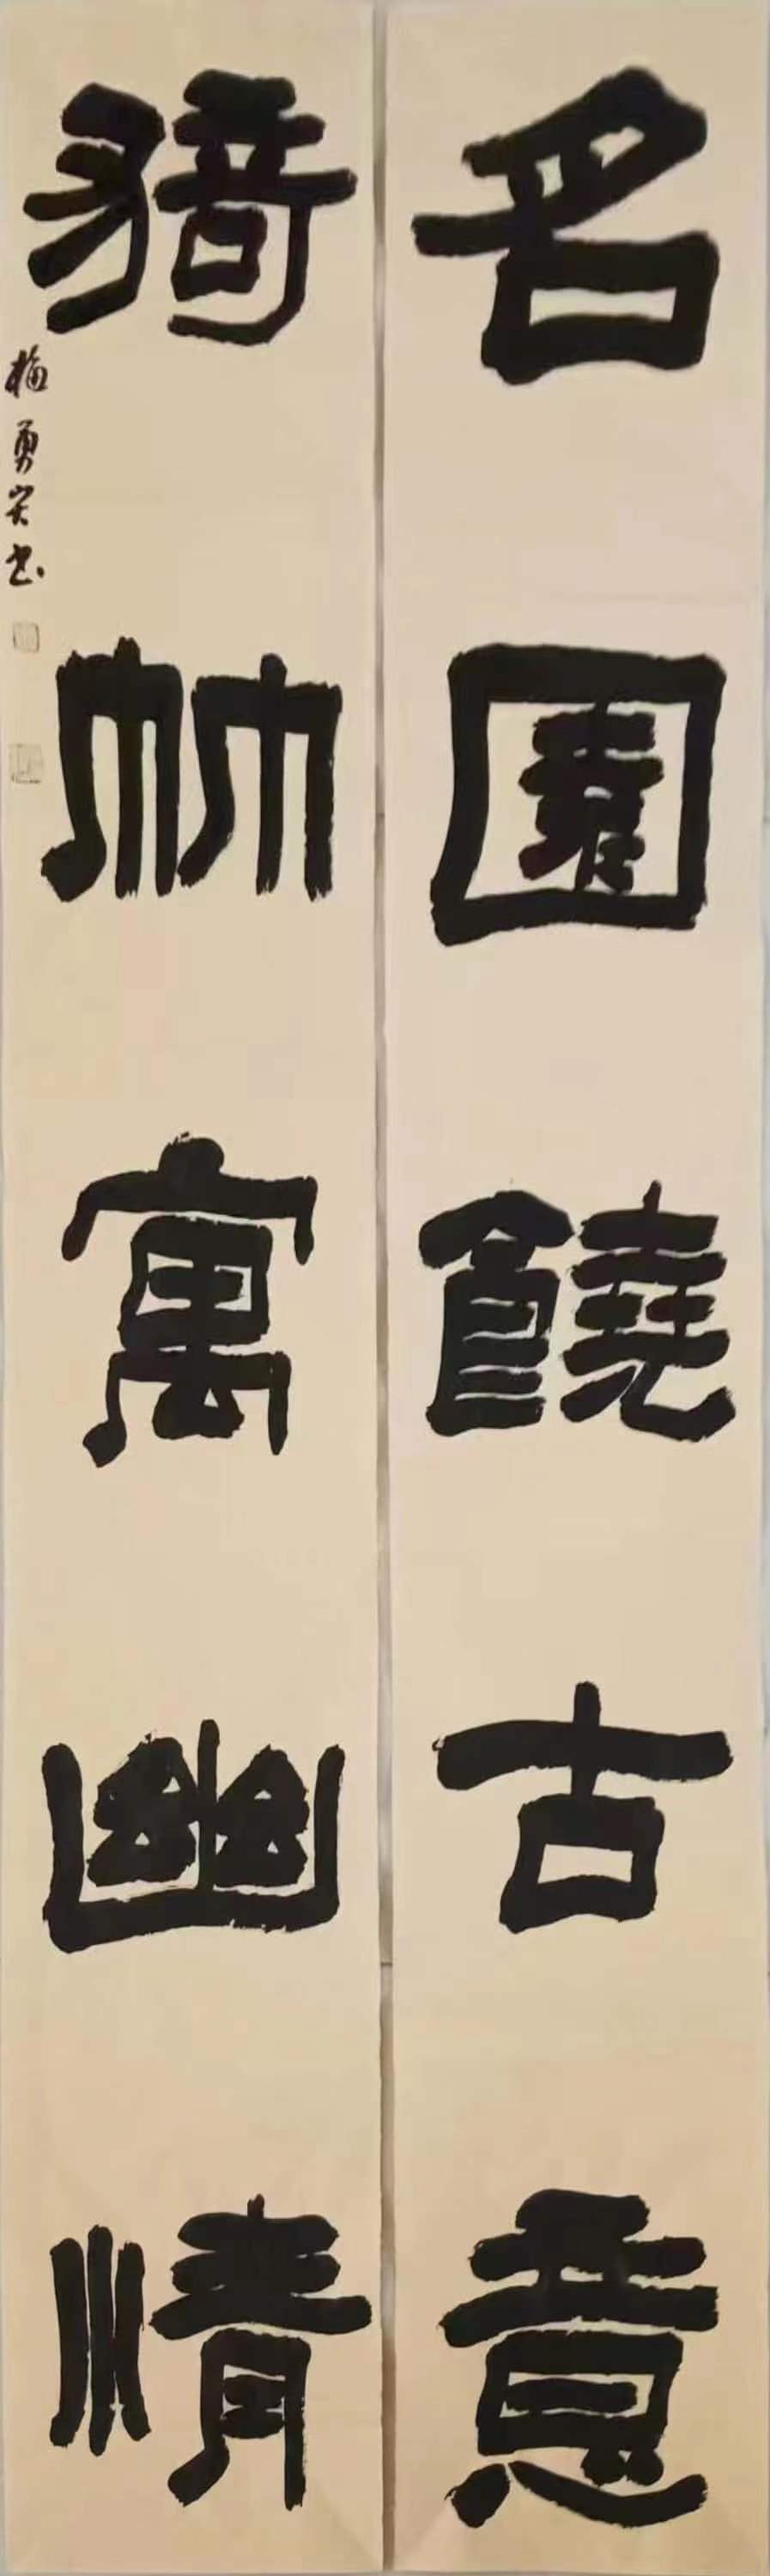 名園饒古意
猗竹寓幽情
梅勇书